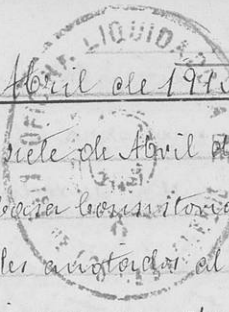 OFICINA LIQUIDA
Abril de 191
siete de Abril d
Casa Consistoria
les anotados al